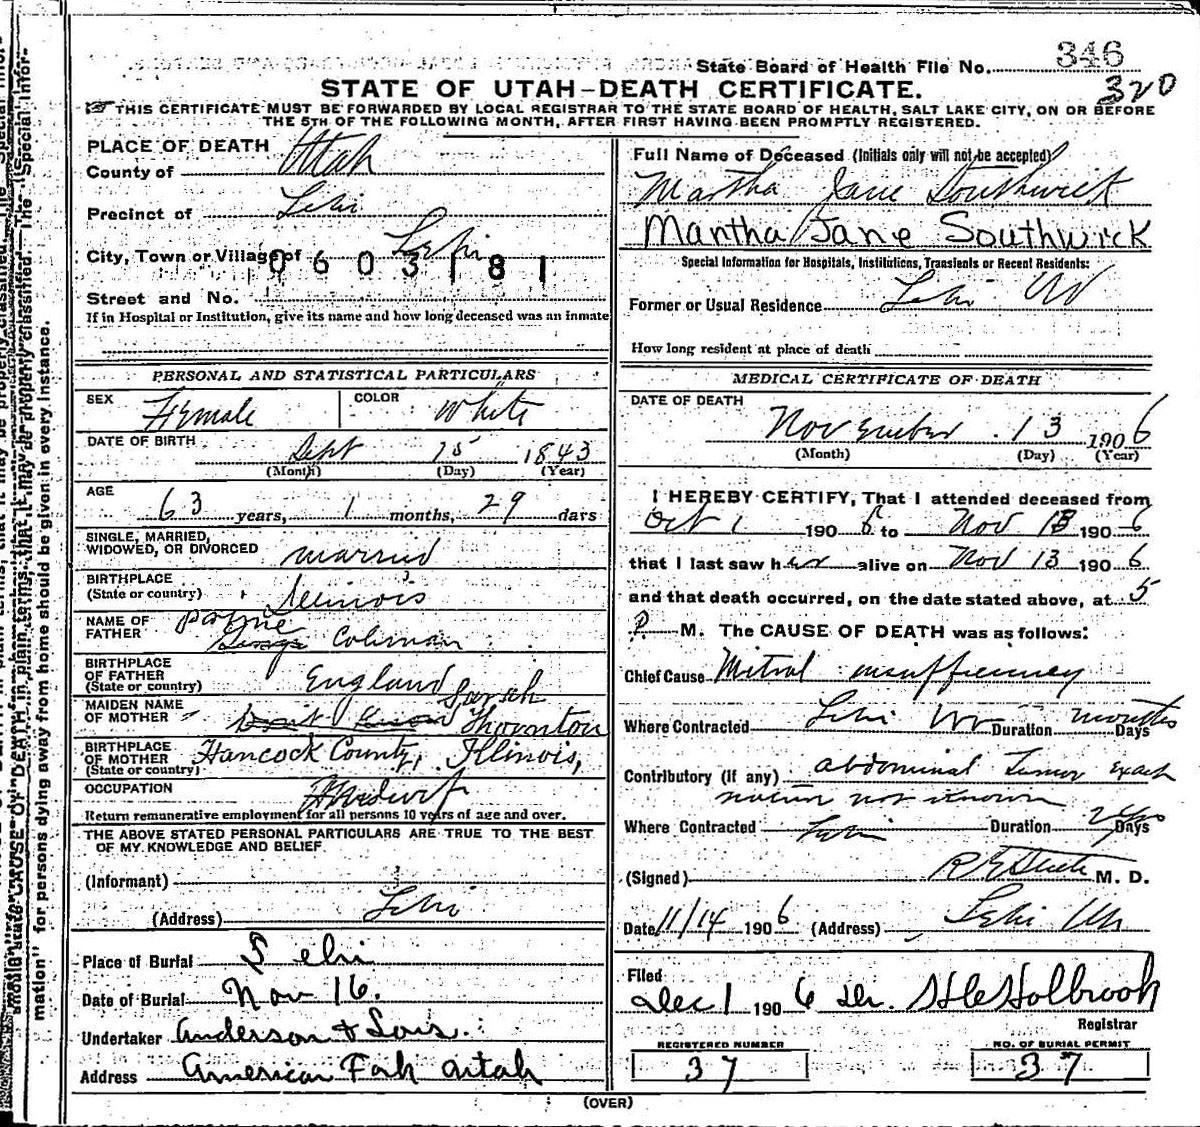 State Board of Health File No. 346
320
STATE OF UTAH-DEATH CERTIFICATE.
THIS CERTIFICATE MUST BE FORWARDED BY LOCAL REGISTRAR TO THE STATE BOARD OF HEALTH, SALT LAKE CITY, ON OR BEFORE
THE 5TH OF THE FOLLOWING MONTH, AFTER FIRST HAVING BEEN PROMPTLY REGISTERED.
PLACE OF DEATH
County of Utah
Precinct of Lehi
City, Town or Village of Lehi
0603181
Street and No.
If in Hospital or Institution, give its name and how long deceased was an inmate
PERSONAL AND STATISTICAL PARTICULARS
SEX Female COLOR White
DATE OF BIRTH Sept 15 1843
(Month) (Day) (Year)
AGE 63 years, 1 months, 29 days
SINGLE, MARRIED,
WIDOWED, OR DIVORCED married
BIRTHPLACE
(State or country) Illinois
NAME OF
FATHER Payne Coliman
BIRTHPLACE
OF FATHER
(State or country) England
MAIDEN NAME
OF MOTHER Dont Know Sarah Thornton
BIRTHPLACE
OF MOTHER
(State or country) Hancock County, Illinois,
OCCUPATION Housewife
Return remunerative employment for all persons 10 years of age and over.
THE ABOVE STATED PERSONAL PARTICULARS ARE TRUE TO THE BEST
OF MY KNOWLEDGE AND BELIEF.
(Informant)
(Address) Lehi
Place of Burial Lehi
Date of Burial Nov 16.
Undertaker Anderson & Sons.
Address American Fork Utah
Full Name of Deceased (Initials only will not be accepted)
Martha Jane Southwick
Martha Jane Southwick
Special Information for Hospitals, Institutions, Transients or Recent Residents:
Former or Usual Residence Lehi Ut
How long resident at place of death
MEDICAL CERTIFICATE OF DEATH
DATE OF DEATH
November 13 1906
(Month) (Day) (Year)
I HEREBY CERTIFY, That I attended deceased from
Oct 1 1906 to Nov 13 1906
that I last saw her alive on Nov 13 1906
and that death occurred, on the date stated above, at 5
P M. The CAUSE OF DEATH was as follows:
Chief Cause Mitral insufficiency
Where Contracted Lehi Ut Duration months Days
Contributory (if any) abdominal Tumor exact
nature not known
Where Contracted Lehi Duration 2 yrs Days
(Signed) M. D.
Date 11/14 1906 (Address) Lehi Ut
Filed
Dec 1 1906 Holbrook
Registrar
REGISTERED NUMBER
37
NO. OF BURIAL PERMIT
37
(OVER)
mation" for persons dying away from home should be given in every instance.